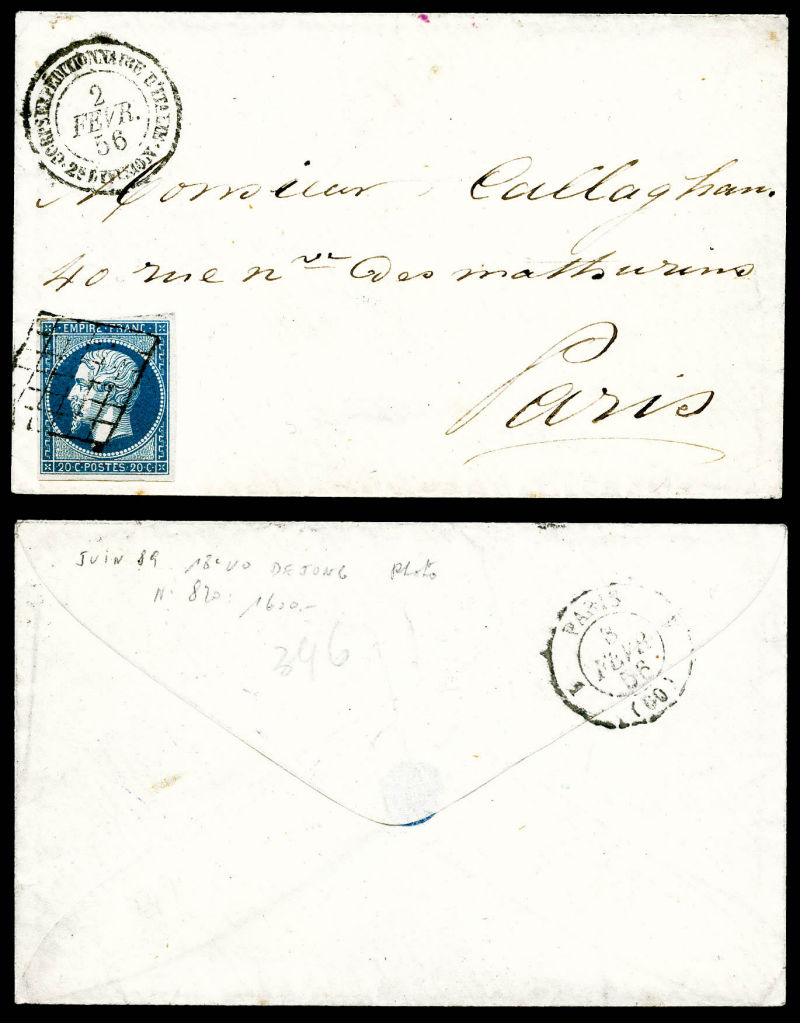 CORPS EXPÉDITIONNAIRE D'ITALIE
2
FEVR.
56
2E DIVISION
Monsieur Callaghan.
40 rue nve des mathurins
Paris
EMPIRE FRANC
20·C·POSTES·20·C·
JUIN 89 18e VO DE JONG Photo
N° 820: 1600.-
346
PARIS
8
FEVR
56
(60)